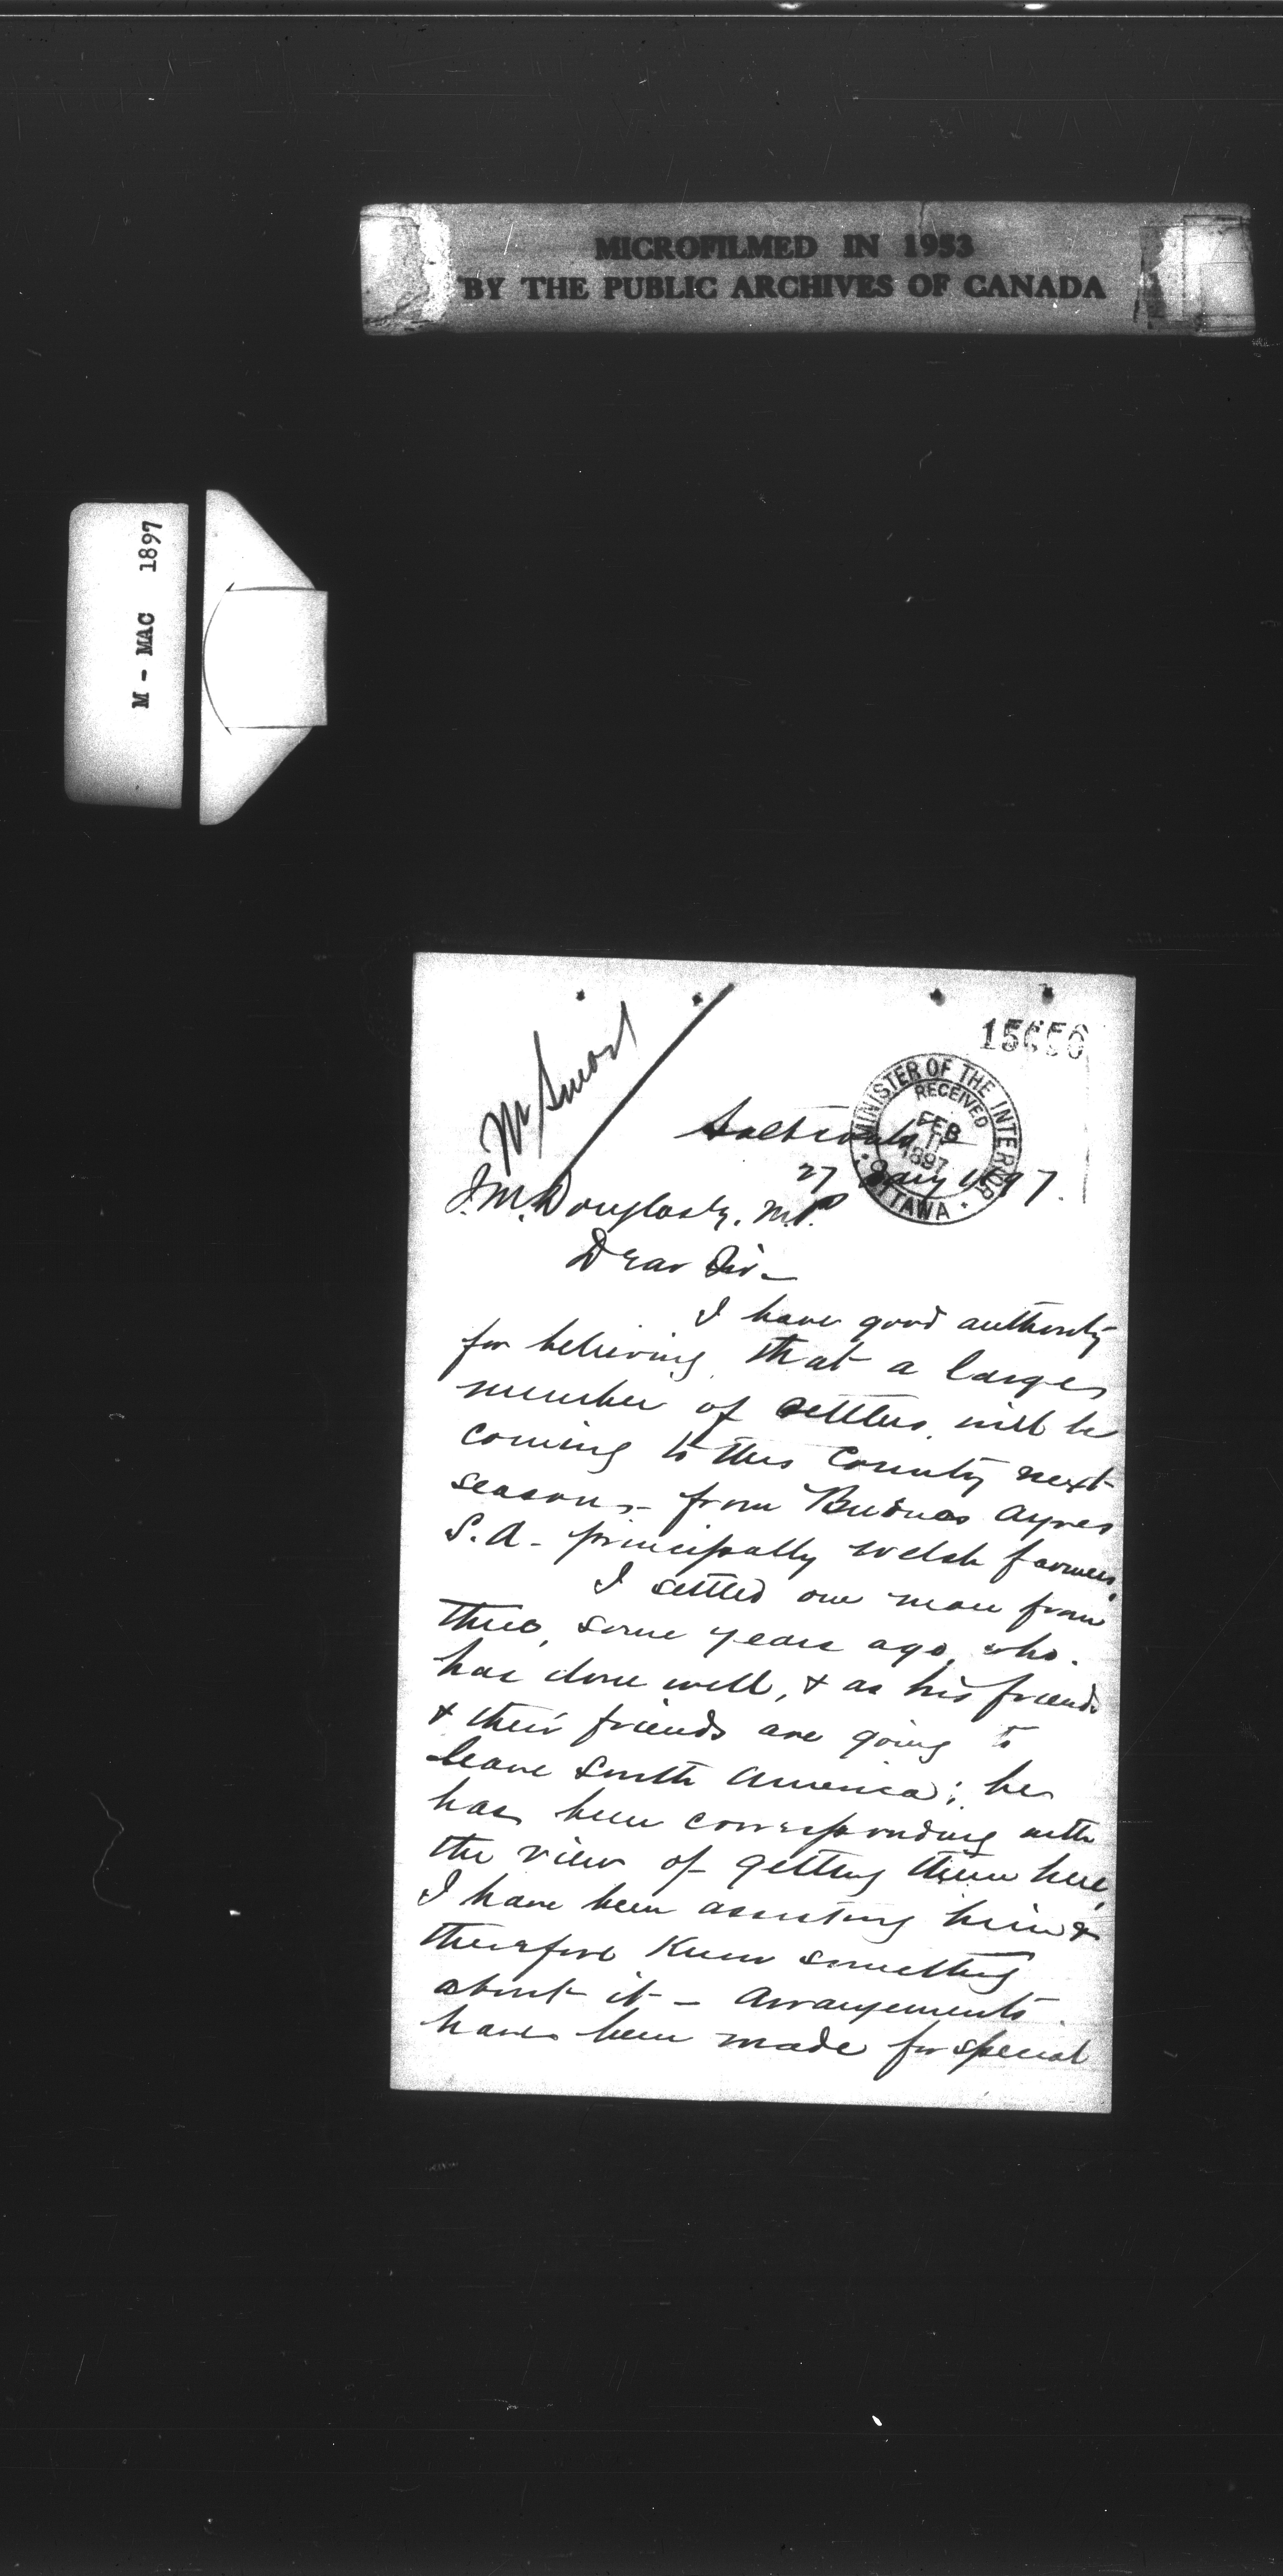 MICROFILMED IN 1953
BY THE PUBLIC ARCHIVES OF CANADA
M - MAC 1897
15656
Mr Smart
MINISTER OF THE INTERIOR
RECEIVED
FEB
11
1897
OTTAWA
Saltcoats
27 Jany 1897.
J.M. Douglas Esq. M.P.
Dear Sir -
I have good authority
for believing that a large
number of settlers will be
coming to this Country next
season - from Buenos Ayres
S.A. - principally Welsh farmers.
I settled one man from
there, some years ago, who
has done well, & as his friends
& their friends are going to
leave South America; he
has been corresponding with
the view of getting them here,
I have been assisting him &
therefore know something
about it - Arrangements
have been made for special